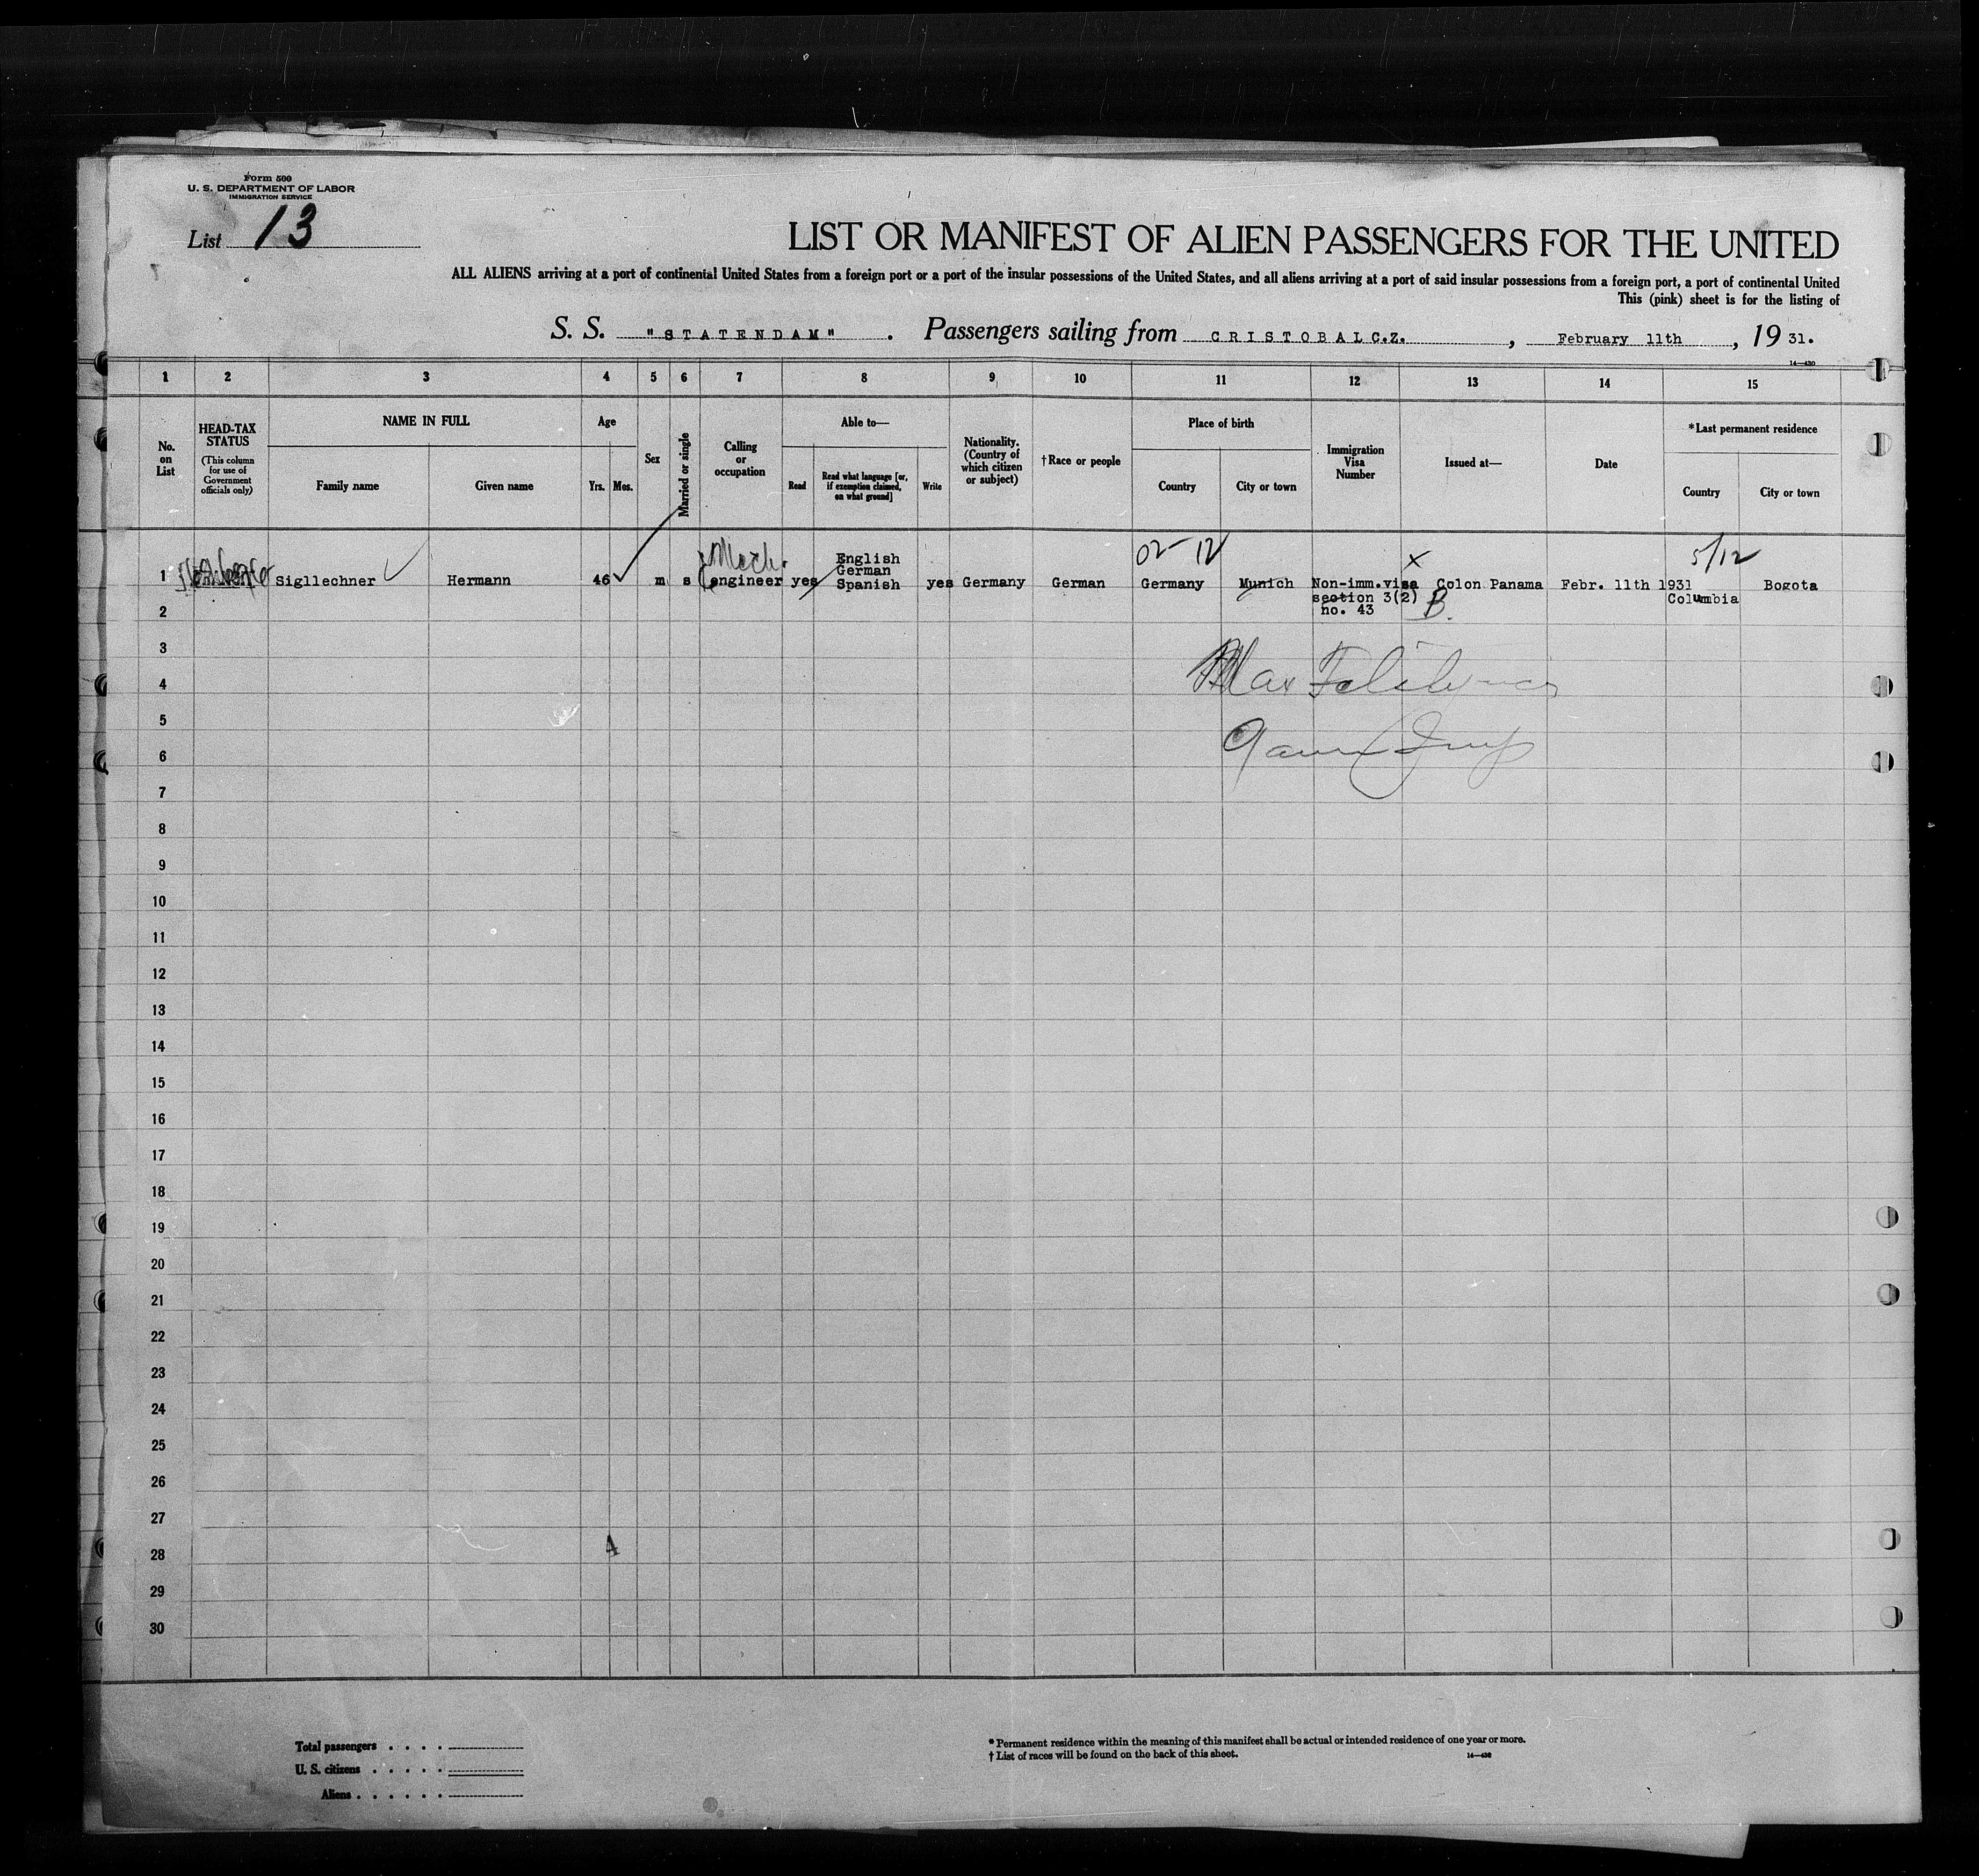 Form 500
U. S. DEPARTMENT OF LABOR
IMMIGRATION SERVICE
List 13
LIST OR MANIFEST OF ALIEN PASSENGERS FOR THE UNITED
ALL ALIENS arriving at a port of continental United States from a foreign port or a port of the insular possessions of the United States, and all aliens arriving at a port of said insular possessions from a foreign port, a port of continental United
This (pink) sheet is for the listing of
S. S. "STATENDAM" . Passengers sailing from CRISTOBAL C.Z. , February 11th , 19 31.
14—430
1 2 3 4 5 6 7 8 9 10 11 12 13 14 15
No. on List
HEAD-TAX STATUS
(This column for use of Government officials only)
NAME IN FULL
Family name Given name
Age
Yrs. Mos.
Sex
Married or single
Calling or occupation
Able to—
Read
Read what language [or, if exemption claimed, on what ground]
Write
Nationality. (Country of which citizen or subject)
†Race or people
Place of birth
Country City or town
Immigration Visa Number
Issued at—
Date
*Last permanent residence
Country City or town
Mech. English 02-12 X 5/12
German
1 Sigllechner Hermann 46 m s engineer yes Spanish yes Germany German Germany Munich Non-imm.visa Colon Panama Febr. 11th 1931 Bogota
section 3(2) B. Columbia
2 no. 43
3
4 Max
5
6
7
8
9
10
11
12
13
14
15
16
17
18
19
20
21
22
23
24
25
26
27
28 4
29
30
Total passengers . . . .
U. S. citizens . . . . .
Aliens . . . . . .
* Permanent residence within the meaning of this manifest shall be actual or intended residence of one year or more.
† List of races will be found on the back of this sheet.
14—430